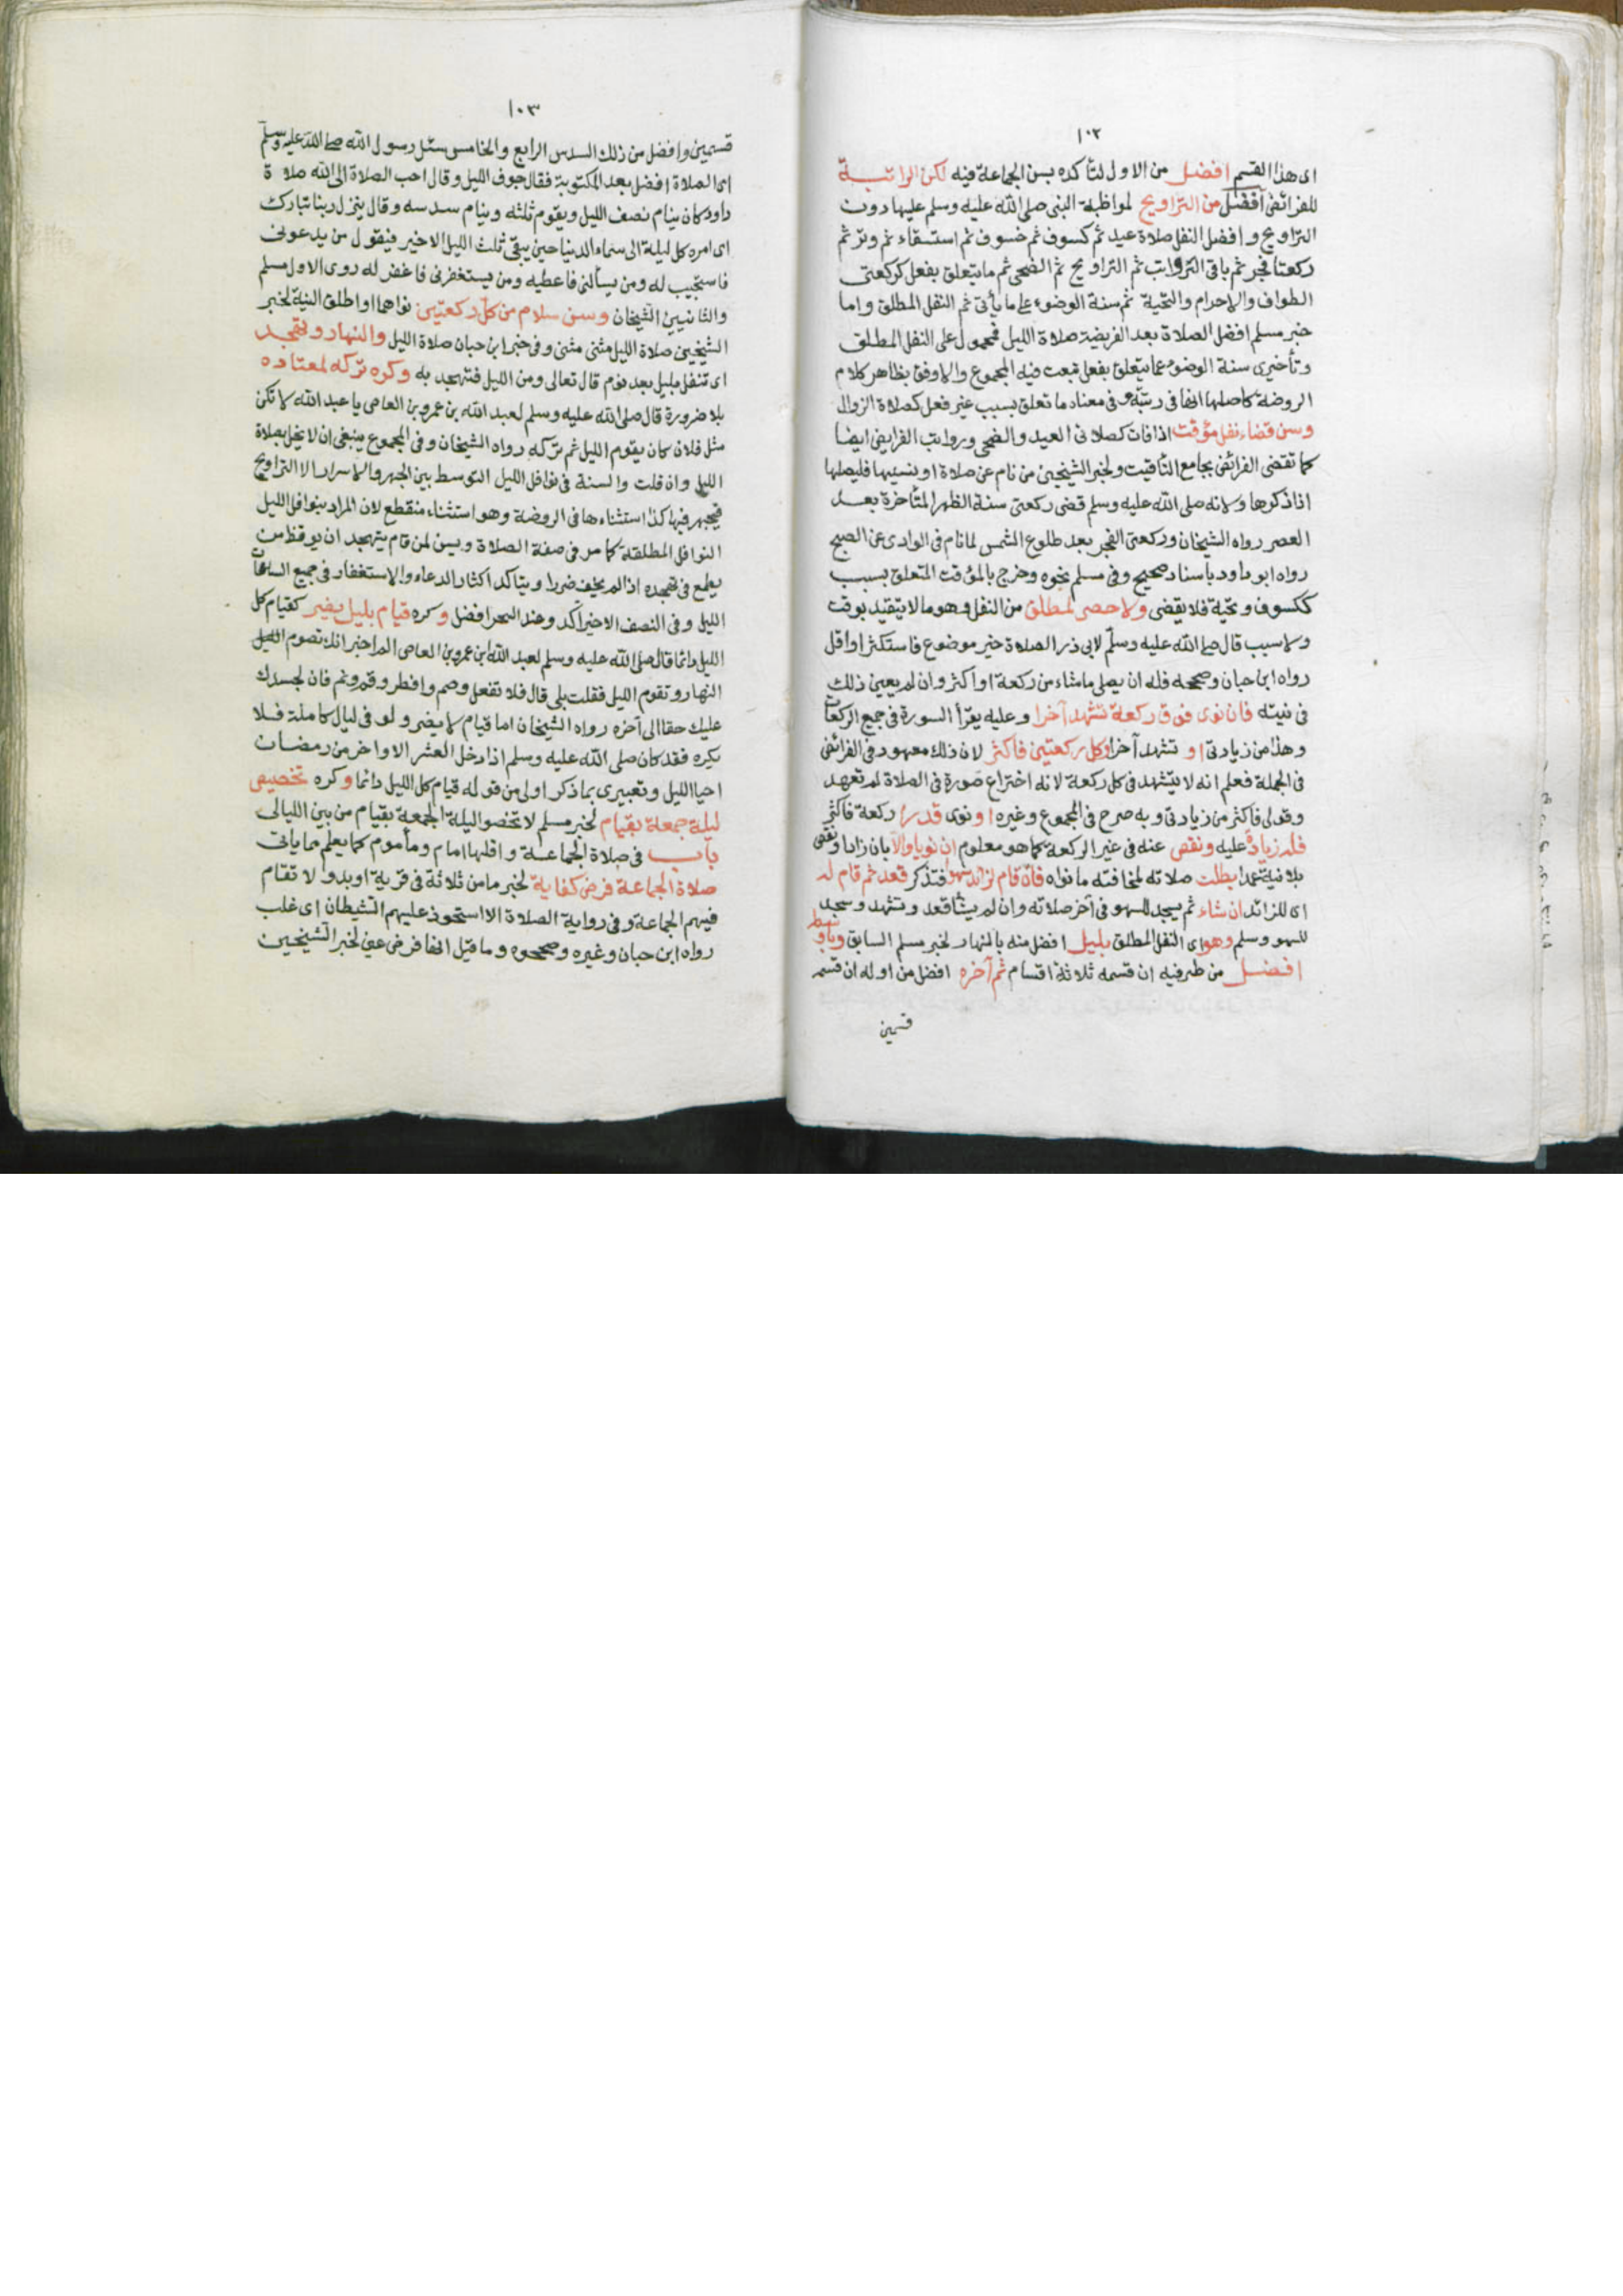 ١٠٢
اى هذا القسم افضل من الاول لتأكده بسن الجماعة فيه لكن الراتبة
للفرائض أفضل من التراويح لمواظبة النبى صلى الله عليه وسلم عليها دون
التراويح وافضل النفل صلاة عيد ثم كسوف ثم خسوف ثم استسقاء ثم وتر ثم
ركعتا فجر ثم باقى الرواتب ثم التراويح ثم الضحى ثم ما يتعلق بفعل كركعتى
الطواف والاحرام والتحية ثم سنة الوضوء على ما يأتى ثم النفل المطلق واما
خبر مسلم افضل الصلاة بعد الفريضة صلاة الليل فمحمول على النفل المطلق
وتأخيرى سنة الوضوء عما يتعلق بفعل تبعت فيه المجموع والاوفق بظاهر كلام
الروضة كاصلها انها فى رتبته وفى معناه ما تعلق بسبب غير فعل كصلاة الزوال
وسن قضاء نفل مؤقت اذا فات كصلاتى العيد والضحى ورواتب الفرايض ايضا
كما تقضى الفرائض بجامع التأقيت ولخبر الشيخين من نام عن صلاة او نسيها فليصلها
اذا ذكرها ولانه صلى الله عليه وسلم قضى ركعتى سنة الظهر المتأخرة بعد
العصر رواه الشيخان وركعتى الفجر بعد طلوع الشمس لما نام فى الوادى عن الصبح
رواه ابو داود باسناد صحيح وفى مسلم نحوه وخرج بالمؤقت المتعلق بسبب
ككسوف وتحية فلا يقضى ولا حصر لمطلق من النفل وهو ما لا يتقيد بوقت
ولا سبب قال صلى الله عليه وسلم لابى ذر الصلاة خير موضوع فاستكثر او اقل
رواه ابن حبان وصححه فله ان يصلى ما شاء من ركعة او اكثر وان لم يعين ذلك
فى نيته فان نوى فوق ركعة تشهد آخرا وعليه يقرأ السورة فى جميع الركعات
وهذا من زيادتى او تشهد آخرا وكل ركعتين فاكثر لان ذلك معهود فى الفرائض
فى الجملة فعلم انه لا يتشهد فى كل ركعة لانه اختراع صورة فى الصلاة لم تعهد
وقولى فاكثر من زيادتى وبه صرح فى المجموع وغيره او نوى قدرا ركعة فاكثر
فله زيادة عليه ونقص عنه فى غير الركعة كما هو معلوم ان نويا والا بان زاد او نقص
بلا نية عمدا بطلت صلاته لمخالفته ما نواه فان قام لزائد سهوا فتذكر قعد ثم قام له
اى للزائد ان شاء ثم يسجد للسهو فى آخر صلاته وان لم يشأ قعد وتشهد وسجد
للسهو وسلم وهو اى النفل المطلق بليل افضل منه بالنهار لخبر مسلم السابق وباوسطه
افضل من طرفيه ان قسمه ثلاثة اقسام ثم آخره افضل من اوله ان قسمه
قسمين
١٠٣
قسمين وافضل من ذلك السدس الرابع والخامس سئل رسول الله صلى الله عليه وسلم
اى الصلاة افضل بعد المكتوبة فقال جوف الليل وقال احب الصلاة الى الله صلاة
داود كان ينام نصف الليل ويقوم ثلثه وينام سدسه وقال ينزل ربنا تبارك
اى امره كل ليلة الى سماء الدنيا حين يبقى ثلث الليل الاخير فيقول من يدعونى
فاستجيب له ومن يسألنى فاعطيه ومن يستغفرنى فاغفر له روى الاول مسلم
والثانيين الشيخان وسن سلام من كل ركعتين نواهما او اطلق النية لخبر
الشيخين صلاة الليل مثنى مثنى وفى خبر ابن حبان صلاة الليل والنهار وتهجد
اى تنفل بليل بعد نوم قال تعالى ومن الليل فتهجد به وكره تركه لمعتاده
بلا ضرورة قال صلى الله عليه وسلم لعبد الله بن عمرو بن العاص يا عبد الله لا تكن
مثل فلان كان يقوم الليل ثم تركه رواه الشيخان وفى المجموع ينبغى ان لا يخل بصلاة
الليل وان قلت والسنة فى نوافل الليل التوسط بين الجهر والاسرار الا التراويح
فيجهر فيها كذا استثناءها فى الروضة وهو استثناء منقطع لان المراد بنوافل الليل
النوافل المطلقة كما مر فى صفة الصلاة ويسن لمن قام يتهجد ان يوقظ من
يطمع فى تهجده اذا لم يخف ضررا ويتأكد اكثار الدعاء والاستغفار فى جميع الساعات
الليل وفى النصف الاخير آكد وعند السحر افضل وكره قيام بليل يضر كقيام كل
الليل دائما قال صلى الله عليه وسلم لعبد الله ابن عمرو بن العاص الم اخبر انك تصوم الليل
النهار وتقوم الليل فقلت بلى قال فلا تفعل وصم وافطر وقم ونم فان لجسدك
عليك حقا الى آخره رواه الشيخان اما قيام لا يضر ولو فى ليال كاملة فلا
يكره فقد كان صلى الله عليه وسلم اذا دخل العشر الاواخر من رمضان
احيا الليل وتعبيرى بما ذكر اولى من قوله قيام كل الليل دائما وكره تخصيص
ليلة جمعة بقيام لخبر مسلم لا تخصوا ليلة الجمعة بقيام من بين الليالى
باب فى صلاة الجماعة واقلها امام ومأموم كما يعلم مما يأتى
صلاة الجماعة فرض كفاية لخبر ما من ثلاثة فى قرية او بدو لا تقام
فيهم الجماعة وفى رواية الصلاة الا استحوذ عليهم الشيطان اى غلب
رواه ابن حبان وغيره وصححوه وما قيل انها فرض عين لخبر الشيخين